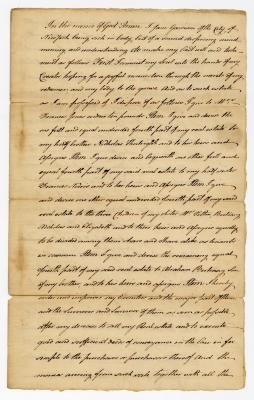 In the name of God Amen. I Jane Garrison of the City of
New York being sick in body but of a sound disposing mind
memory and understanding do make my last will and testa
ment as follows First I commend my soul into the hands of my
Creator hoping for a joyful resurrection through the merits of my
redeemer and my body to the grave And as to such estate
as I am possessed of I dispose of as follows I give to Mrs
Frances Jones pounds Item I give and devise the
one full and equal undivided fourth part of my real estate to
my half brother Nicholas and to his heirs and
Assigns Item I give devise and bequeath one other full and
equal fourth part of my said real estate to my half sister
Frances and to her heirs and Assigns Item I give
and devise one other equal undivided fourth part of my said
real estate to the three Children of my sister
Nicholas and Elizabeth and to their heirs and Assigns equally
to be divided among them share and share alike as tenants
in common Item I give and devise the remaining equal
fourth part of my said real estate to Abraham son
of my brother, and to his heirs and Assigns Item I hereby
order and impower my Executors and the major part of them
and the survivors and survivor of them as soon as possible
after my decease to sell my Real estate and to execute
good and sufficient deeds of conveyance in the law in fee
simple to the purchaser or purchasers thereof And the
monies arising from such sale together with all the